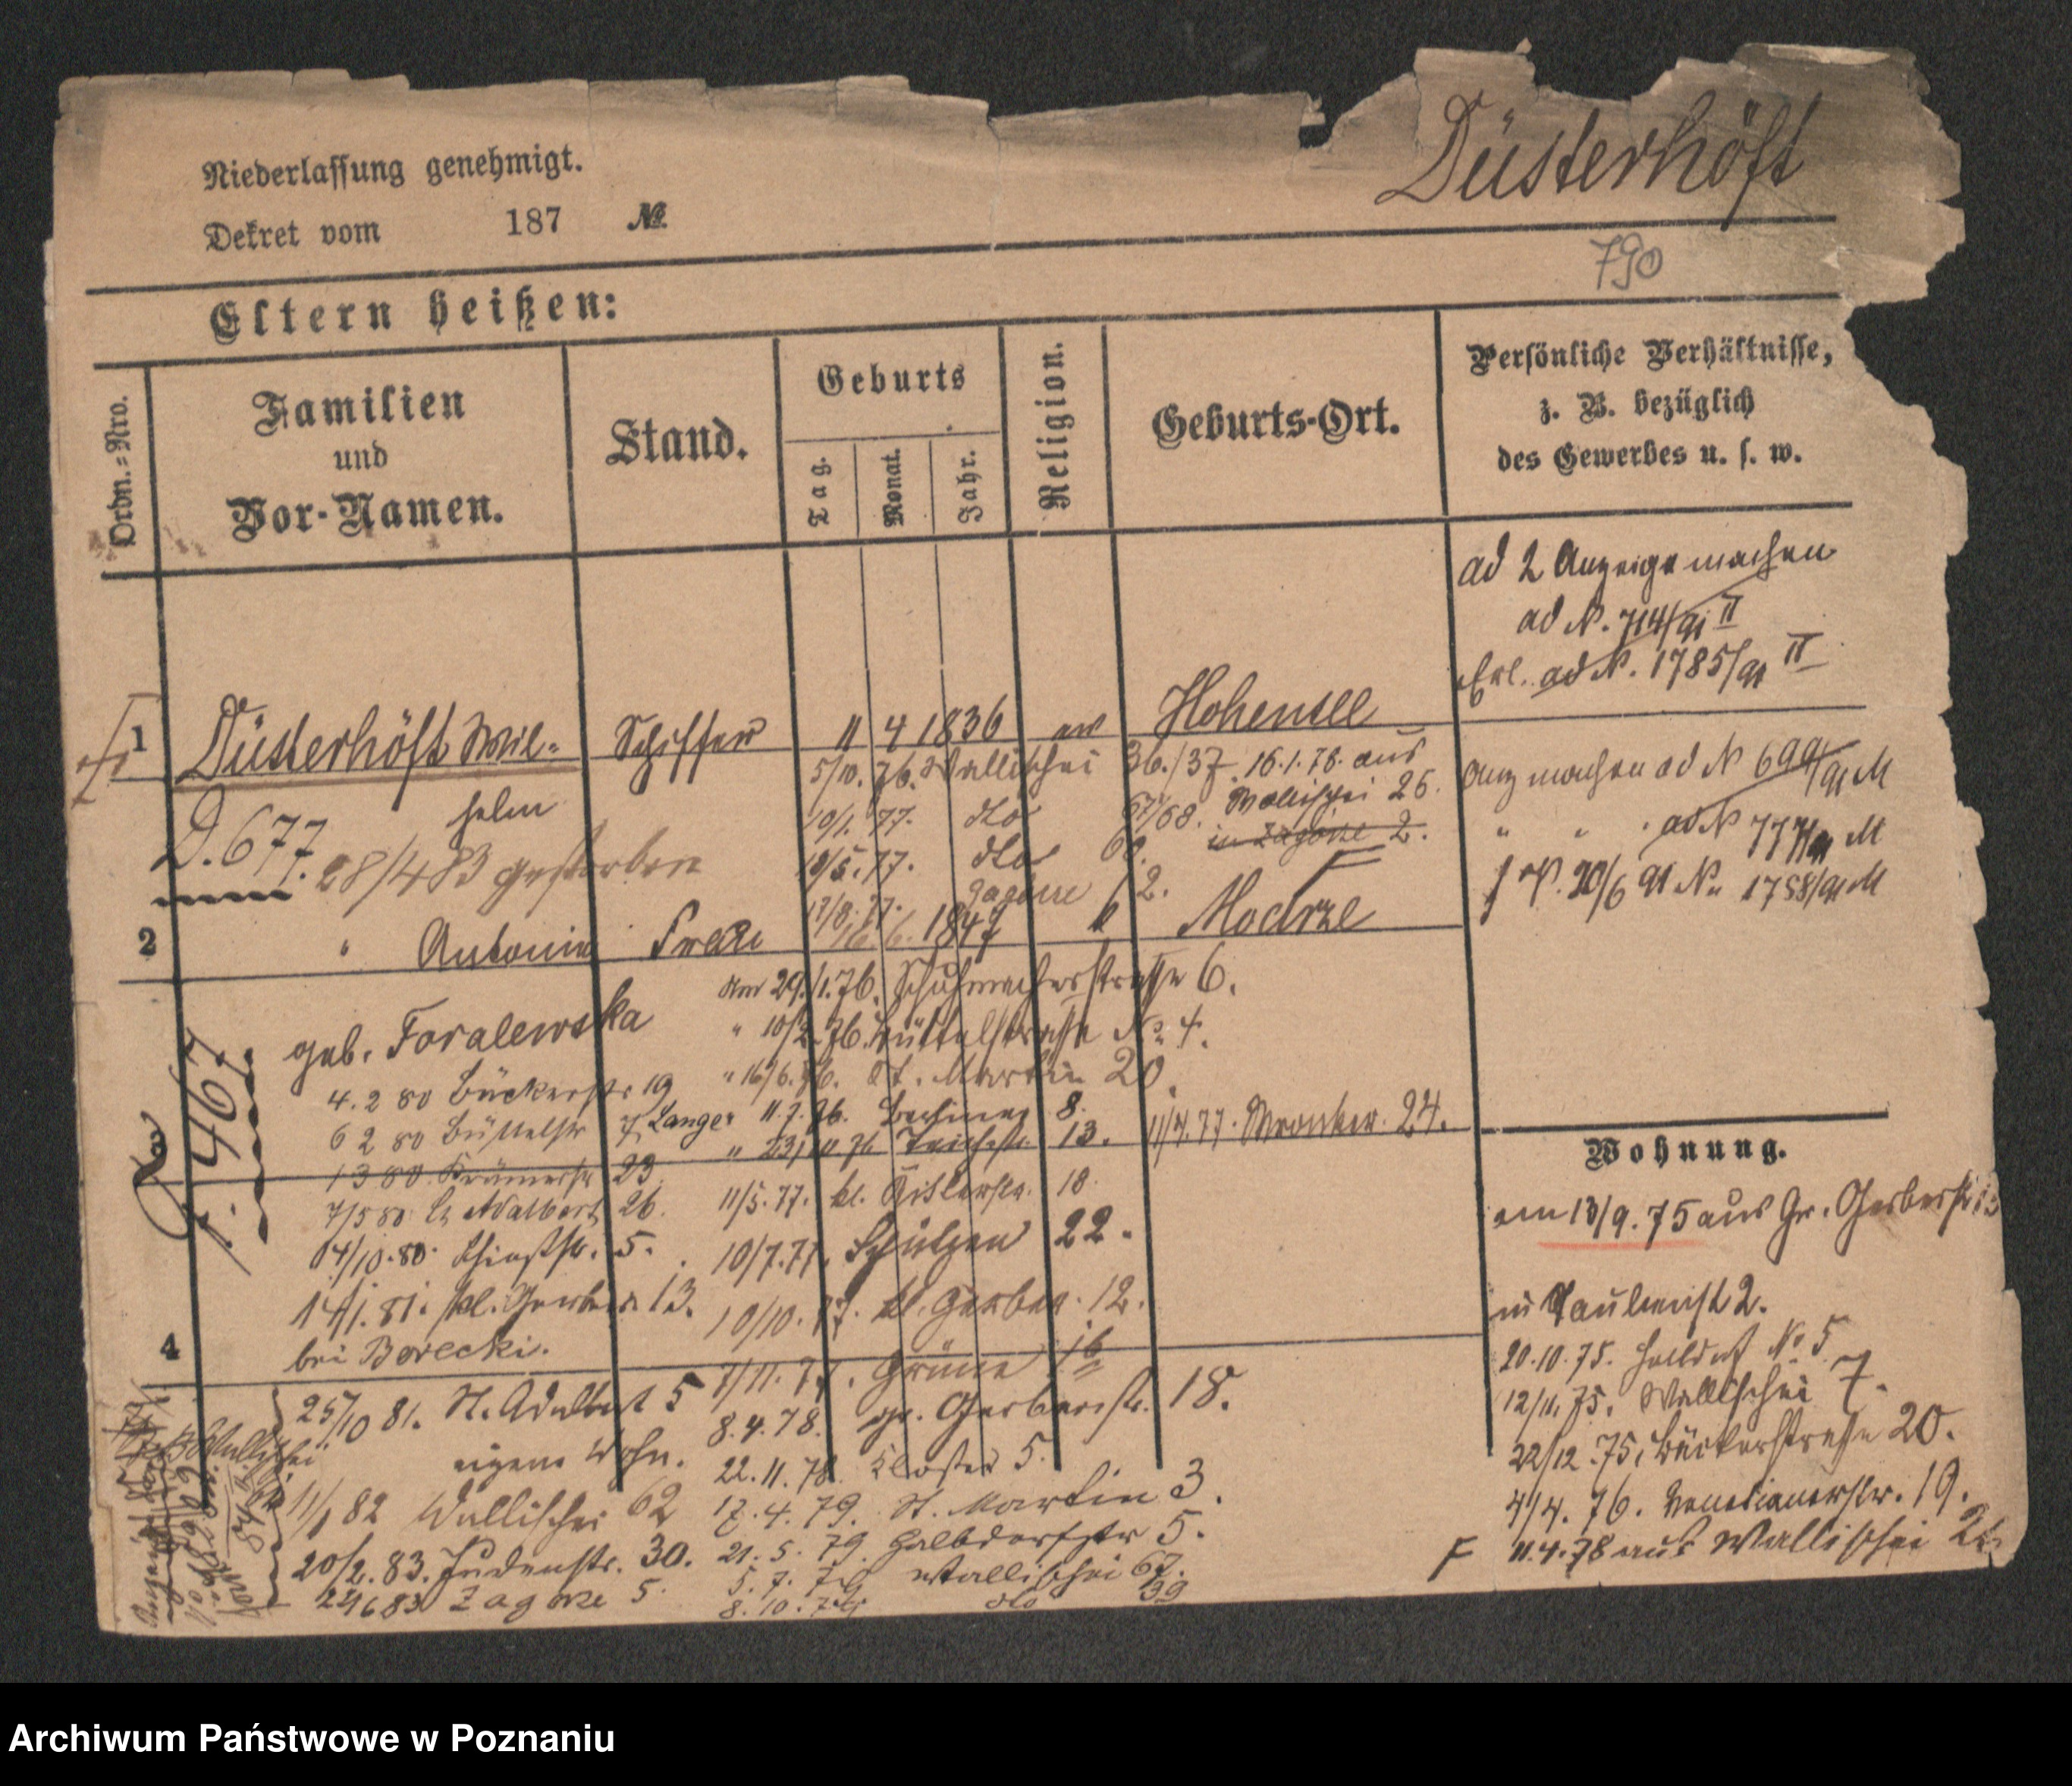 Düsterhöft
Niederlassung genehmigt.
Dekret vom 187 №
790
Eltern heißen:
Ordn.=Nro.
Familien
und
Vor-Namen.
Stand.
Geburts
Tag.
Monat.
Jahr.
Religion.
Geburts-Ort.
Persönliche Verhältnisse,
z. B. bezüglich
des Gewerbes u. s. w.
ad 2 Anzeige machen
ad N. 714/91 II
Erl. ad N. 1785/91 II
1 Düsterhöft Wil= Schiffer 11 4 1836 ev Hohensee
helm
D. 677.
28/4 83 gestorben
5/10. 76. Wallischei 36./37. 16.1.78. aus
Wallischei 26.
10/1. 77. dto 67/68. in Zagorze 2.
12/5. 77. dto 68.
17/8. 77. Zagorze 2.
Anz machen ad N 699/91 M
" " ad N 777/91 M
20/6 91 N. 1758/91 M
2 " Antonie Frau 16. 6. 1847 k Modrze
geb. Foralewska
F. 467.
am 29./1.76. Schuhmacherstrasse 6.
" 10/2. 76. Büttelstrasse No. 4.
" 16/6. 76. St. Martin 20.
" 11.7.76. 8.
" 23/10 76 Teichstr. 13. 11/4. 77. Wronker. 24.
11/5. 77. kl. Ritterstr. 18.
10/7. 77. Schützen 22.
10/10. 77. kl. Gerber. 12.
7/11. 77. Grüne 16
8.4.78. gr. Gerberstr. 18.
22.11.78. Kloster 5.
17.4.79. St. Martin 3.
21.5.79. Halbdorfstr 5.
5.7.79 Wallischei 67.
8.10.79 dto 39
4.2 80 Bäckerstr 19
6 2 80 Büttelstr 7, Lange
1 3 80. Krämerstr 23.
7/5 80 St. Adalbert 26.
14/10. 80. Schiesstr. 5.
14/1. 81. kl. Gerber 13.
bei Borecki.
4
25/10 81. St. Adalbert 5
eigene Wohn.
11/1 82 Wallischei 62
20/2. 83. Judenstr. 30.
22/6 83 Zagorze 5.
Wallischei
Wohnung.
am 13/9. 75 aus Gr. Gerberstr 13
in Taubenst 2.
20.10.75. Halbdorf No 5
12/11. 75. Wallischei 7.
22/12. 75. Bäckerstrasse 20.
4/4. 76. Venetianerstr. 19.
F 11.4.78 aus Wallischei
Archiwum Państwowe w Poznaniu